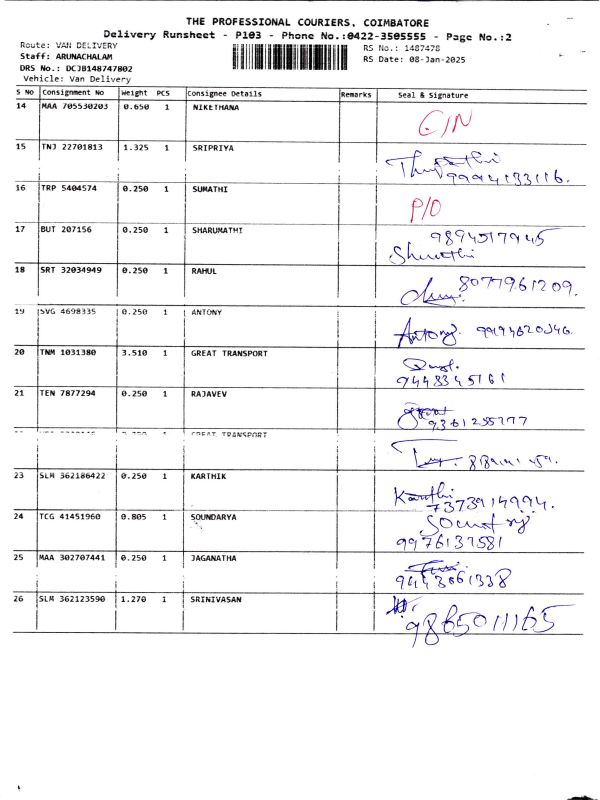 THE PROFESSIONAL COURIERS, COIMBATORE
Delivery Runsheet - P103 - Phone No.:0422-3505555 - Page No.:2
Route: VAN DELIVERY
RS No.: 1487478
Staff: ARUNACHALAM
RS Date: 08-Jan-2025
DRS No.: DCJB148747802
Vehicle: Van Delivery
S No Consignment No Weight PCS Consignee Details Remarks Seal & Signature
14 MAA 705530203 0.650 1 NIKETHANA
15 TNJ 22701813 1.325 1 SRIPRIYA
9994133116.
16 TRP 5404574 0.250 1 SUMATHI P/O
17 BUT 207156 0.250 1 SHARUMATHI
9894517945
18 SRT 32034949 0.250 1 RAHUL
8077961209.
19 SVG 4698335 0.250 1 ANTONY
Antony.
20 TNM 1031380 3.510 1 GREAT TRANSPORT
9448345161
21 TEN 7877294 0.250 1 RAJAVEV
GREAT TRANSPORT
23 SLM 362186422 0.250 1 KARTHIK
Karthi
7373914994.
24 TCG 41451960 0.805 1 SOUNDARYA
9976137581
25 MAA 302707441 0.250 1 JAGANATHA
9443061338
26 SLM 362123590 1.270 1 SRINIVASAN
9865011165